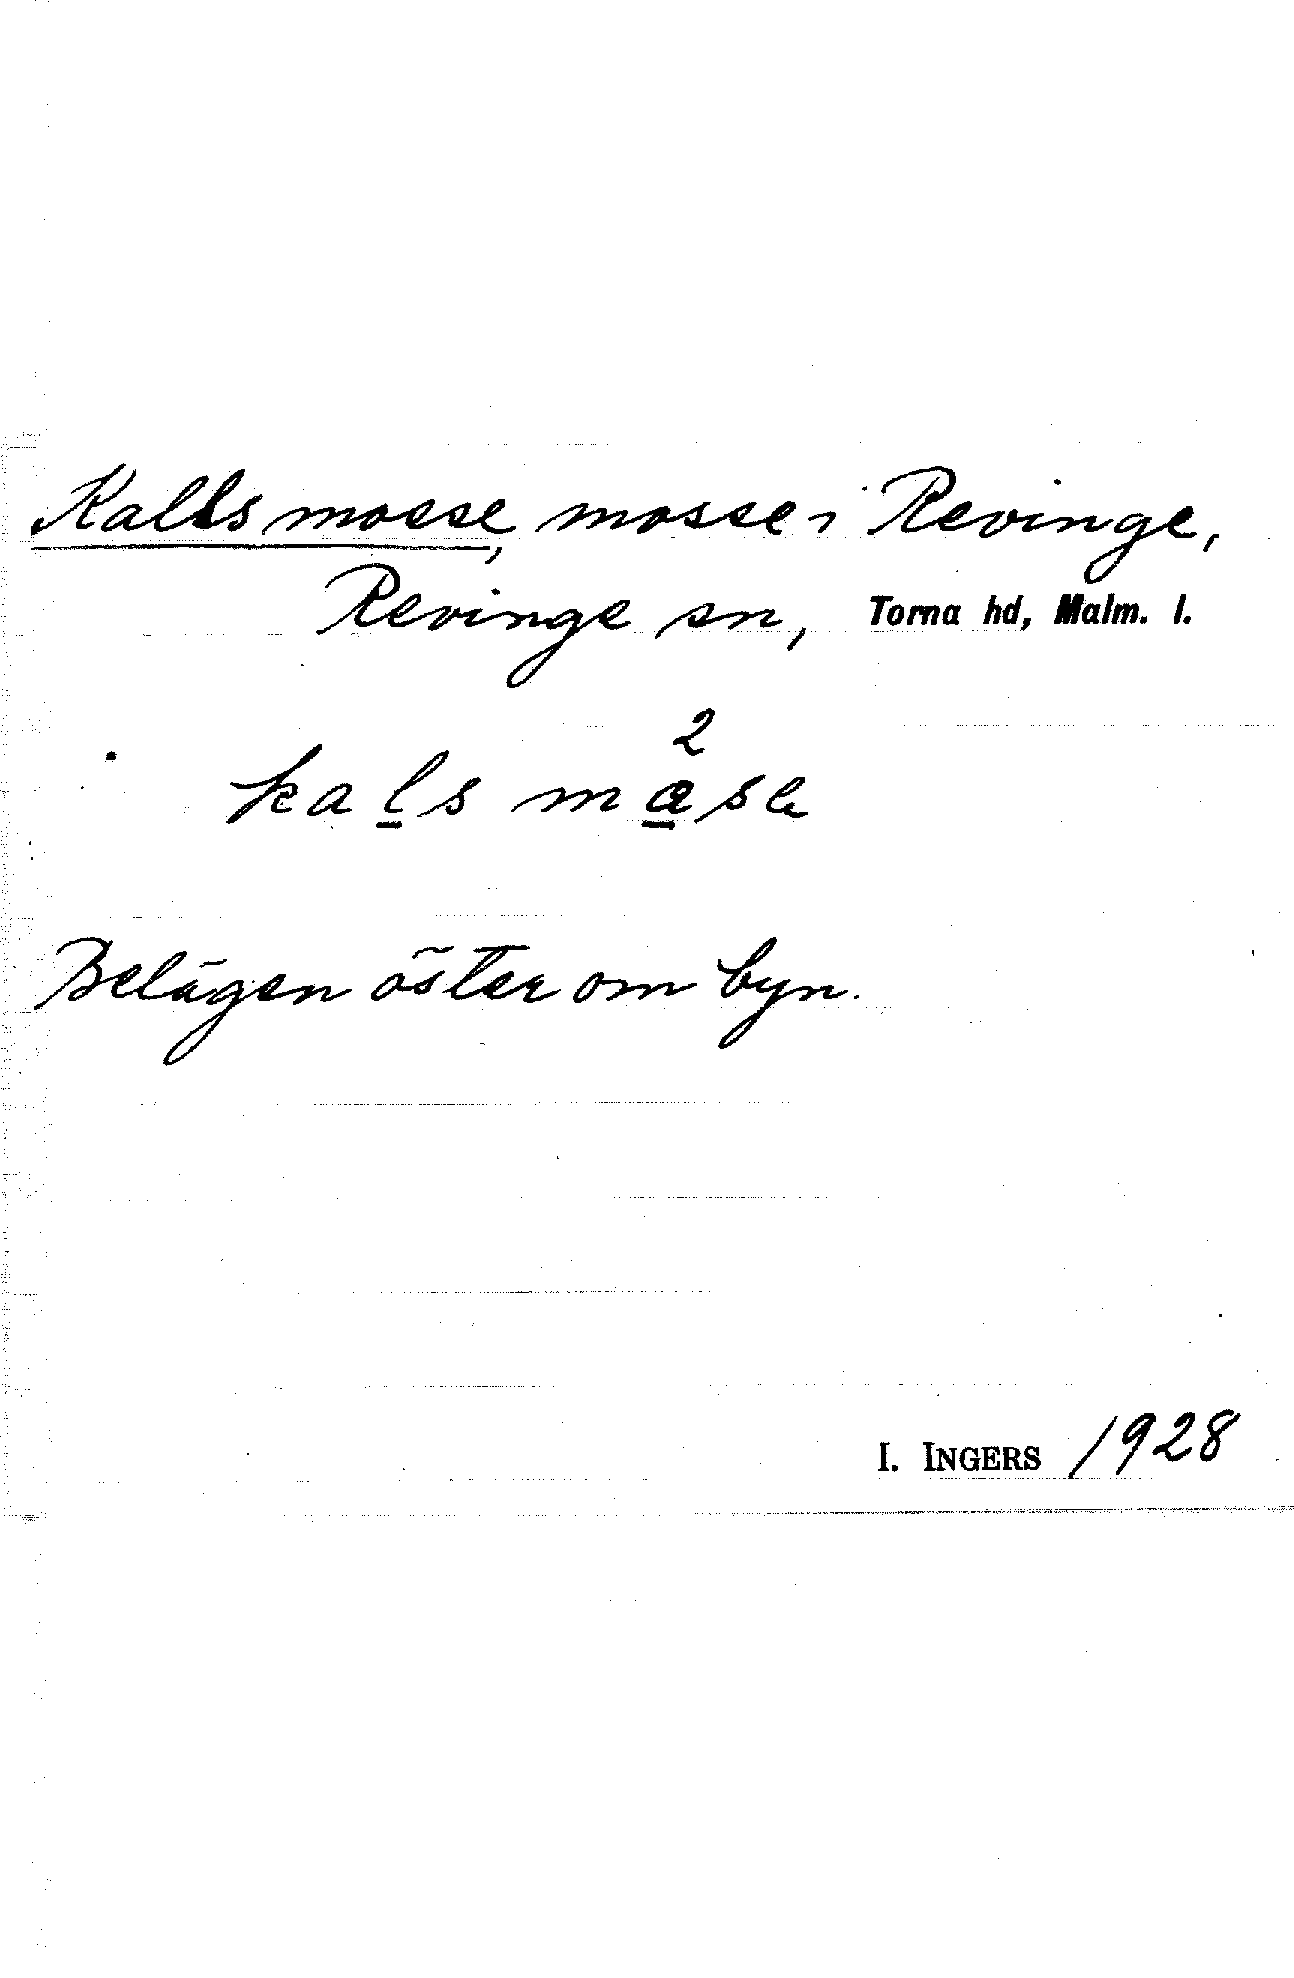 Kalls mosse, mosse i Revinge,
Revinge sn, Torna hd, Malm. l.
2
kals måsə
Belägen öster om byn.
I. INGERS 1928